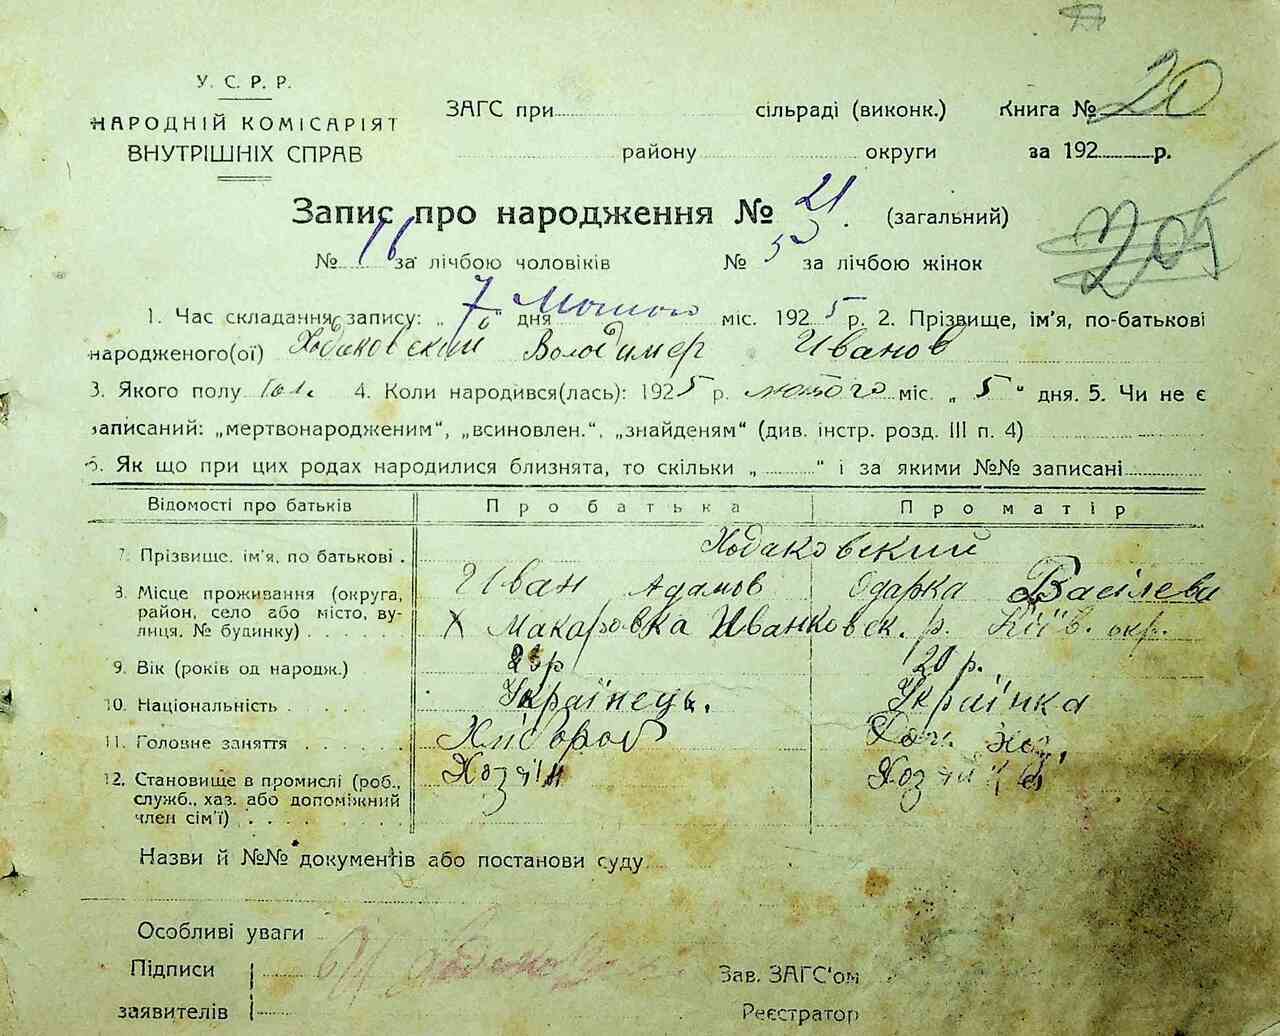 У. С. Р. Р.
НАРОДНІЙ КОМІСАРІЯТ
ВНУТРІШНІХ СПРАВ
ЗАГС при сільраді (виконк.) Книга № 20
району округи за 192 р.
Запис про народження № 21. (загальний)
№ 16 за лічбою чоловіків № 5 за лічбою жінок
1. Час складання запису: „7“ дня Лютого міс. 1925 р. 2. Прізвище, ім'я, по-батькові
народженого(ої) Ходаковский Володимер Иванов
3. Якого полу 4. Коли народився(лась): 1925 р. лютого міс. „5“ дня. 5. Чи не є
записаний: „мертвонародженим“, „всиновлен.“, „знайденям“ (див. інстр. розд. III п. 4)
6. Як що при цих родах народилися близнята, то скільки „ “ і за якими №№ записані
Відомості про батьків Про батька Про матір
7. Прізвище, ім'я, по батькові . Ходаковский
Иван Адамов Одарка Василева
8. Місце проживання (округа, район, село або місто, вулиця, № будинку) . . . . . Х Макаровка Иванковск. р. Київ. окр.
9. Вік (років од народж.) 23р 20 р.
10. Національність . . . . Українець. Українка
11. Головне заняття . . . . . . Хлібороб
12. Становище в промислі (роб., служб., хаз. або допоміжний член сім'ї) . . . . . . . . Хозяїн
Назви й №№ документів або постанови суду
Особливі уваги
Підписи
заявителів
Зав. ЗАГС'ом
Реєстратор